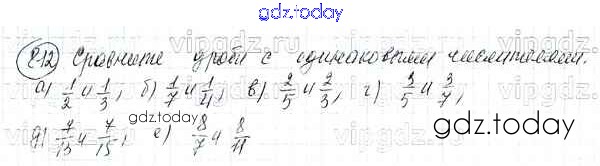 gdz.today
812 Сравните дроби с одинаковыми числителями.
а) 1/2 и 1/3; б) 1/7 и 1/4; в) 2/5 и 2/3; г) 3/5 и 3/7;
д) 7/13 и 7/15; е) 8/7 и 8/11
gdz.today